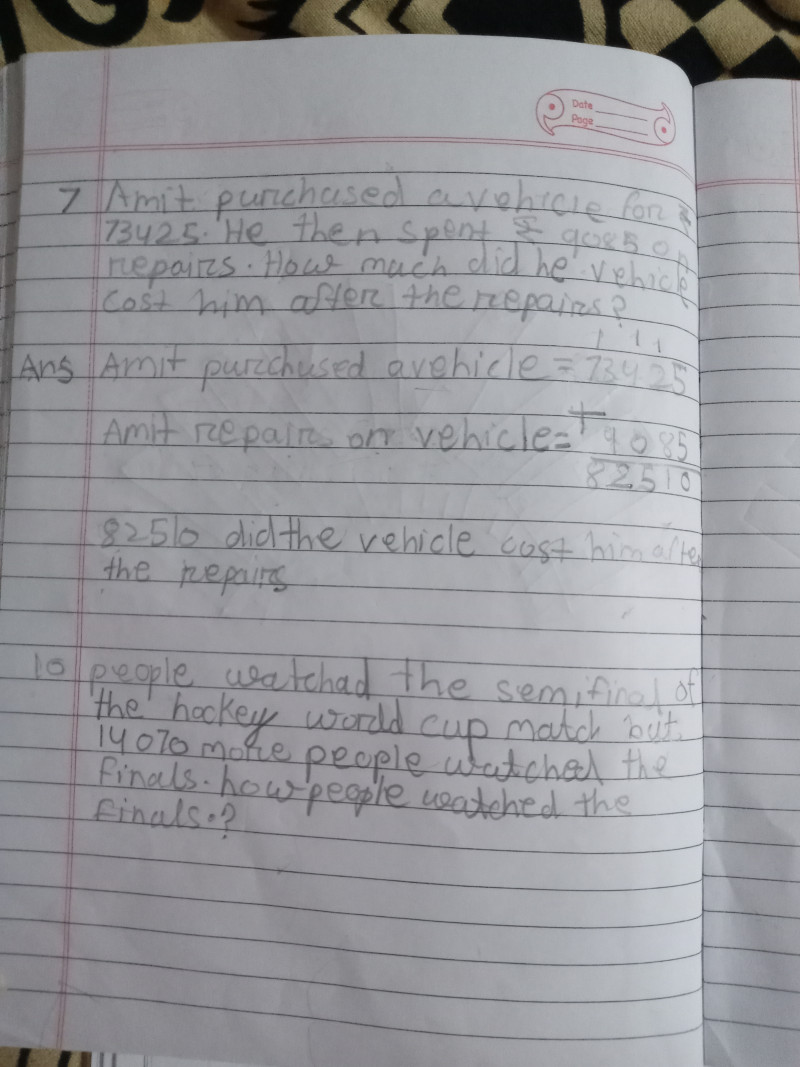 Date
Page
7 Amit purchased a vehicle for ₹
73425. He then spent ₹ 9085 on
repairs. How much did he vehicle
cost him after the repairs?
1 1 1
Ans Amit purchased a vehicle = 73425
Amit repairs on vehicle = + 9085
82510
82510 did the vehicle cost him after
the repairs
10 people watchad the semifinal of
the hockey world cup match but
14070 more people watched the
finals. how people watched the
finals.?